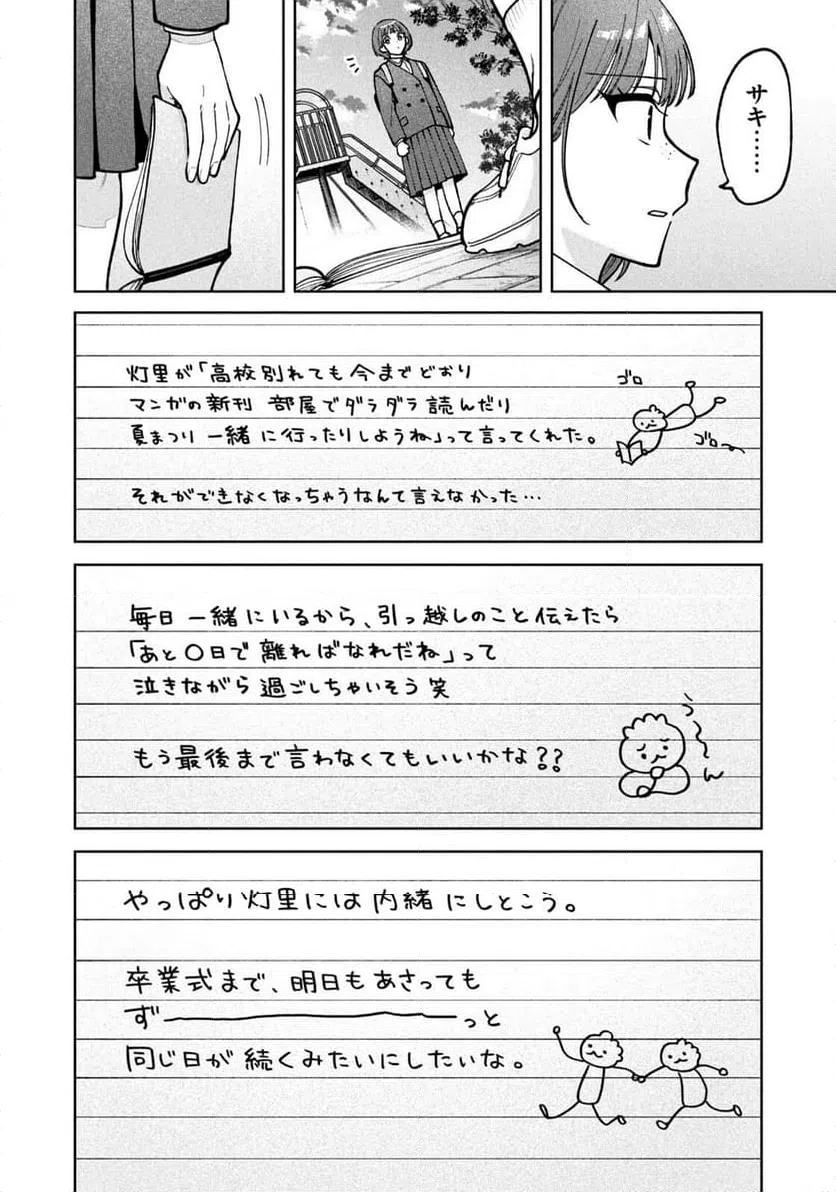 サキ……
灯里が「高校別れても今までどおり
マンガの新刊 部屋でダラダラ読んだり
夏まつり一緒に行ったりしようね」って言ってくれた。
ゴロ
ゴロ〜
それができなくなっちゃうなんて言えなかった…
毎日一緒にいるから、引っ越しのこと伝えたら
「あと〇日で離ればなれだね」って
泣きながら過ごしちゃいそう笑
もう最後まで言わなくてもいいかな??
う〜ん
やっぱり灯里には内緒にしとこう。
卒業式まで、明日もあさっても
ず――――――っと
同じ日が続くみたいにしたいな。